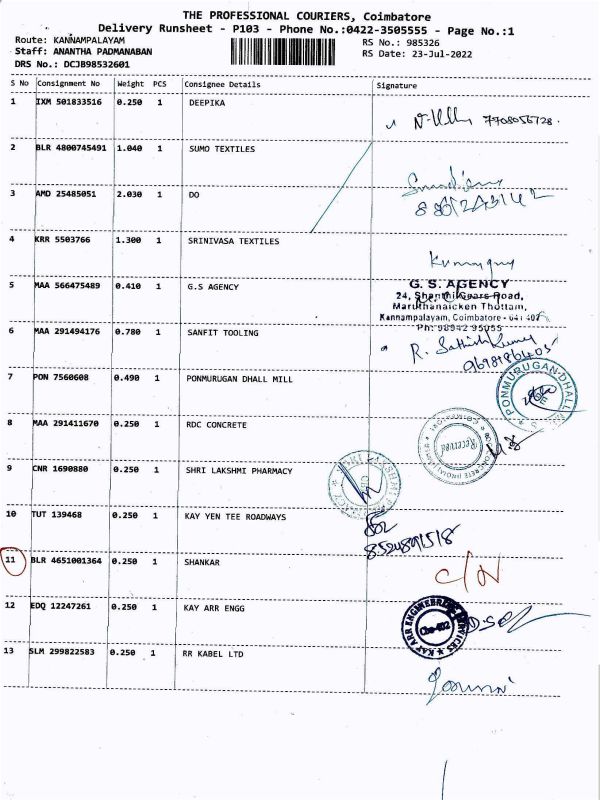 THE PROFESSIONAL COURIERS, Coimbatore
Delivery Runsheet - P103 - Phone No.:0422-3505555 - Page No.:1
Route: KANNAMPALAYAM RS No.: 985326
Staff: ANANTHA PADMANABAN RS Date: 23-Jul-2022
DRS No.: DCJB98532601
S No Consignment No Weight PCS Consignee Details Signature
1 IXM 501833516 0.250 1 DEEPIKA
7708056728.
2 BLR 4800745491 1.040 1 SUMO TEXTILES
3 AMD 25485051 2.030 1 DO
4 KRR 5503766 1.300 1 SRINIVASA TEXTILES
5 MAA 566475489 0.410 1 G.S AGENCY
G. S. AGENCY
24, Shanthi Gears Road,
Maruthanaicken Thottam,
Kannampalayam, Coimbatore - 641 402
Ph: 98942 95055
6 MAA 291494176 0.780 1 SANFIT TOOLING
R. Sathish Kumar
7 PON 7560608 0.490 1 PONMURUGAN DHALL MILL
PONMURUGAN DHALL
8 MAA 291411670 0.250 1 RDC CONCRETE
Received
9 CNR 1690880 0.250 1 SHRI LAKSHMI PHARMACY
10 TUT 139468 0.250 1 KAY YEN TEE ROADWAYS
8524891518
11 BLR 4651001364 0.250 1 SHANKAR
C/N
12 EDQ 12247261 0.250 1 KAY ARR ENGG
KAY ARR ENGINEERING SERVICES
Cbe-402
13 SLM 299822583 0.250 1 RR KABEL LTD